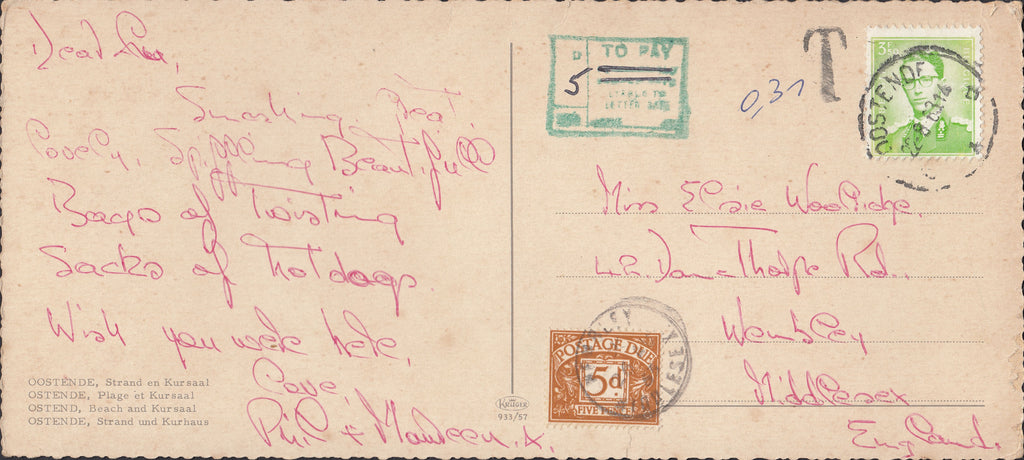 Dear Lee,
Smashing Boat,
Lovely, Spiffing Beautifull
Bags of Twisting
Sacks of hotdogs.
Wish you were here,
Love,
Phil & Maureen. x.
OOSTENDE, Strand en Kursaal
OSTENDE, Plage et Kursaal
OSTEND, Beach and Kursaal
OSTENDE, Strand und Kurhaus
KRÜGER
933/57
D TO PAY
5
LIABLE TO
LETTER RATE
0,31
T
3F
OOSTENDE
Miss Elsie Woolidge.
42. Thorpe Rd.,
Wembley
Middlesex
England.
POSTAGE DUE
5d
FIVE PENCE